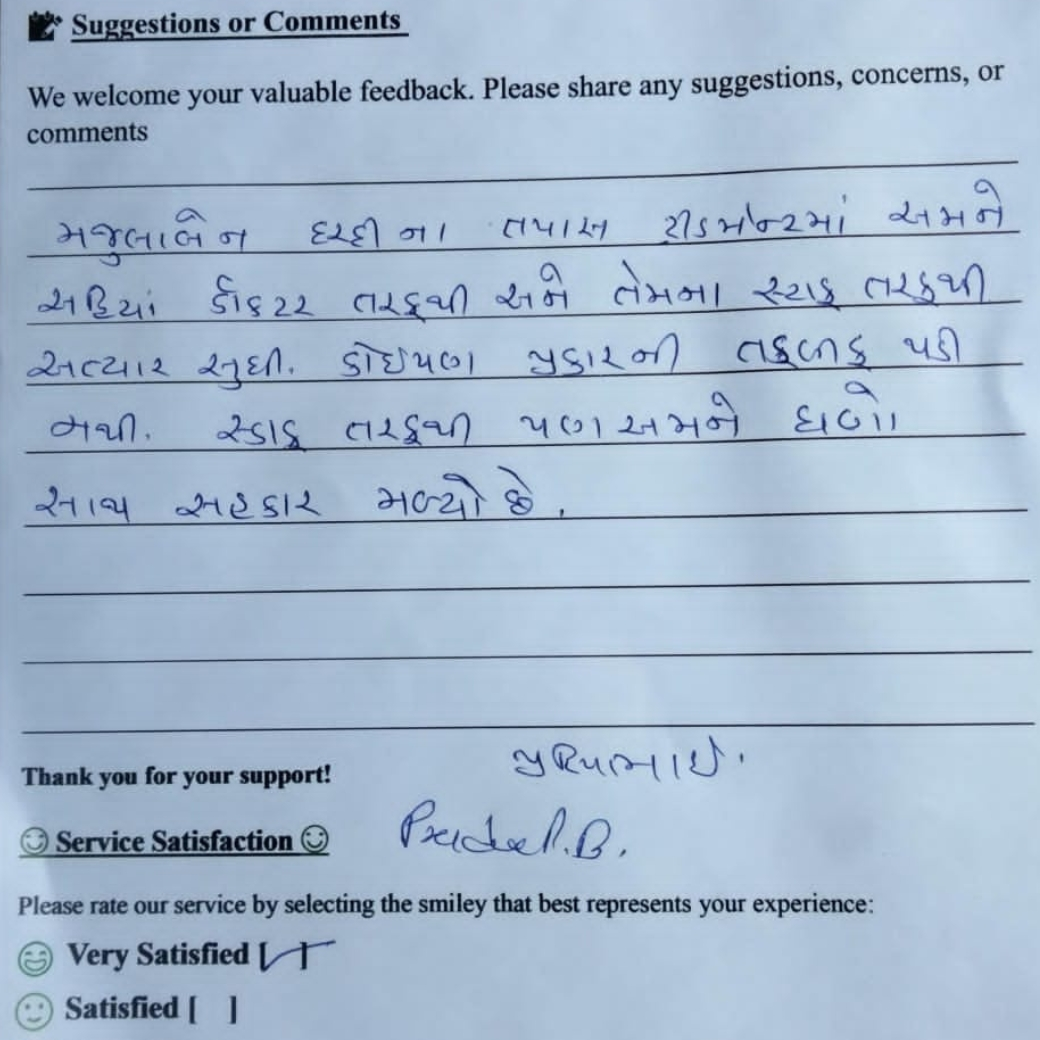 Suggestions or Comments
We welcome your valuable feedback. Please share any suggestions, concerns, or
comments
મજુલાબેન દરદીના તપાસ અમને
અહિયાં ડોકટર તરફથી અને તેમના સ્ટાફ તરફથી
અત્યાર સુધી. કોઇપણ પ્રકારની તકલીફ પડી
નથી. સ્ટાફ તરફથી પણ અમને ઘણો
સાથ સહકાર મળ્યો છે.
Thank you for your support!
Service Satisfaction
Please rate our service by selecting the smiley that best represents your experience:
Very Satisfied [✓]
Satisfied [ ]